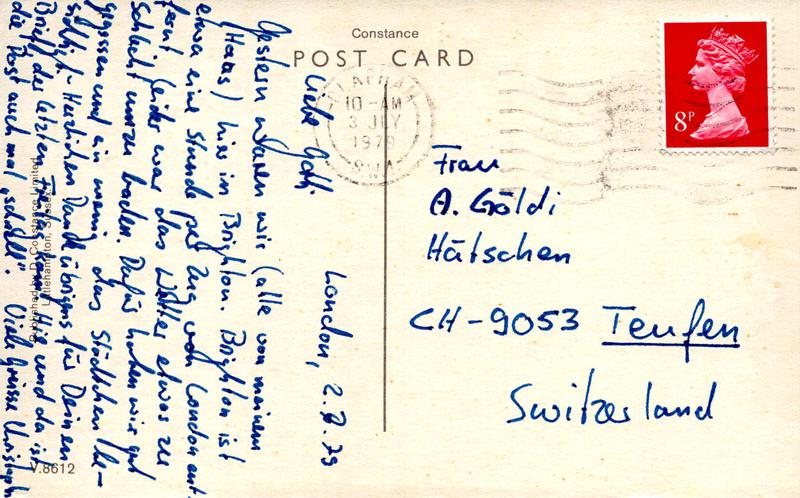 Constance
POST CARD
CLAPHAM
10-AM
3 JLY
1979
S.W.4
8P
Frau
A. Göldi
Hätschen
CH-9053 Teufen
Switzerland
London, 2.7.79
Liebe Gotti
Gestern waren wir (alle von meinem
Haus) hier in Brighton. Brighton ist
etwa eine Stunde per Zug von London ent-
fernt. Leider war das Wetter etwas zu
schlecht umzu baden. Dafür haben wir gut
gegessen und ein wenig das Städtchen be-
sichtigt. Herzlichen Dank übrigens für Deinen
Brief, der letzten Freitag kam! Hie und da ist
die Post auch mal „schnell". Viele Grüsse Christoph
Published by D. Constance Limited,
Littlehampton, Sussex
V.8612